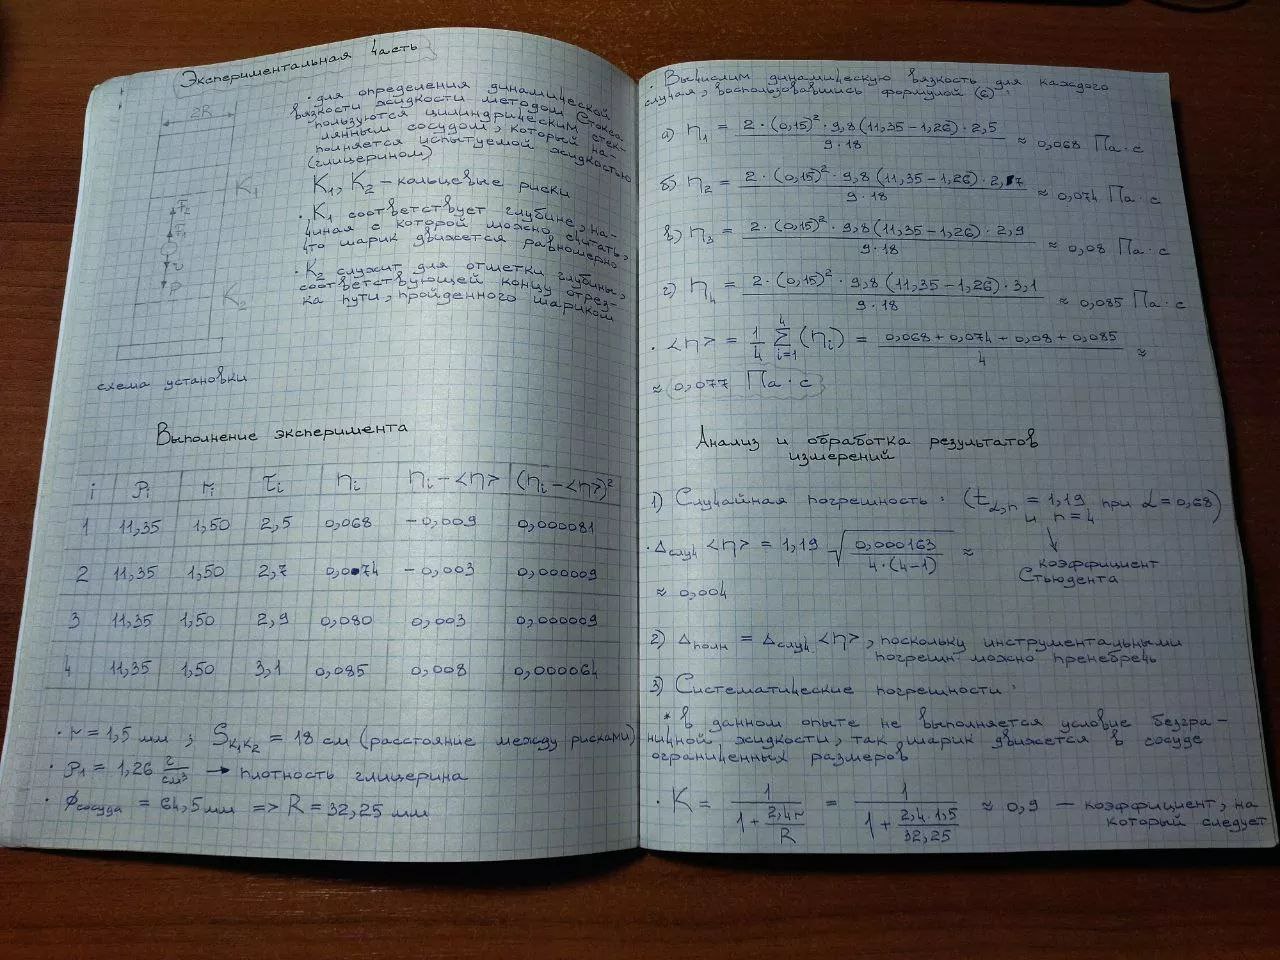 Экспериментальная часть
2R
K₁
F₂
F₁
υ
P
K₂
схема установки
· для определения динамической
вязкости жидкости методом Стокса
пользуются цилиндрическим стек-
лянным сосудом, который на-
полняется испытуемой жидкостью
(глицерином)
K₁, K₂ – кольцевые риски
· K₁ соответствует глубине, на-
чиная с которой можно считать,
что шарик движется равномерно
· K₂ служит для отметки глубины,
соответствующей концу отрез-
ка пути, пройденного шариком
Выполнение эксперимента
i ρi ri τi ηi ηi – <η> (ηi – <η>)²
1 11,35 1,50 2,5 0,068 – 0,009 0,000081
2 11,35 1,50 2,7 0,074 – 0,003 0,000009
3 11,35 1,50 2,9 0,080 0,003 0,000009
4 11,35 1,50 3,1 0,085 0,008 0,000064
· r = 1,5 мм ; S_K₁K₂ = 18 см (расстояние между рисками)
· ρ₁ = 1,26 г/см³ → плотность глицерина
· ϕсосуда = 64,5 мм => R = 32,25 мм
· Вычислим динамическую вязкость для каждого
случая, воспользовавшись формулой (6) :
а) η₁ = 2 · (0,15)² · 9,8 (11,35 – 1,26) · 2,5 / 9 · 18 ≈ 0,068 Па · с
б) η₂ = 2 · (0,15)² · 9,8 (11,35 – 1,26) · 2,7 / 9 · 18 ≈ 0,074 Па · с
в) η₃ = 2 · (0,15)² · 9,8 (11,35 – 1,26) · 2,9 / 9 · 18 ≈ 0,08 Па · с
г) η₄ = 2 · (0,15)² · 9,8 (11,35 – 1,26) · 3,1 / 9 · 18 ≈ 0,085 Па · с
· <η> = 1/4 Σ⁴ᵢ₌₁ (ηi) = 0,068 + 0,074 + 0,08 + 0,085 / 4 ≈
≈ 0,077 Па · с
Анализ и обработка результатов
измерений
1) Случайная погрешность : (t_α,n = 1,19 при α = 0,68)
и n = 4
· Δслуч <η> = 1,19 √(0,000163 / 4·(4–1)) ≈
коэффициент
Стьюдента
≈ 0,004
2) Δполн = Δслуч <η>, поскольку инструментальными
погрешн можно пренебречь
3) Систематические погрешности :
* в данном опыте не выполняется условие безгра-
ничной жидкости, так шарик движется в сосуде
ограниченных размеров
· K = 1 / (1 + 2,4r/R) = 1 / (1 + 2,4·1,5/32,25) ≈ 0,9 — коэффициент, на
который следует